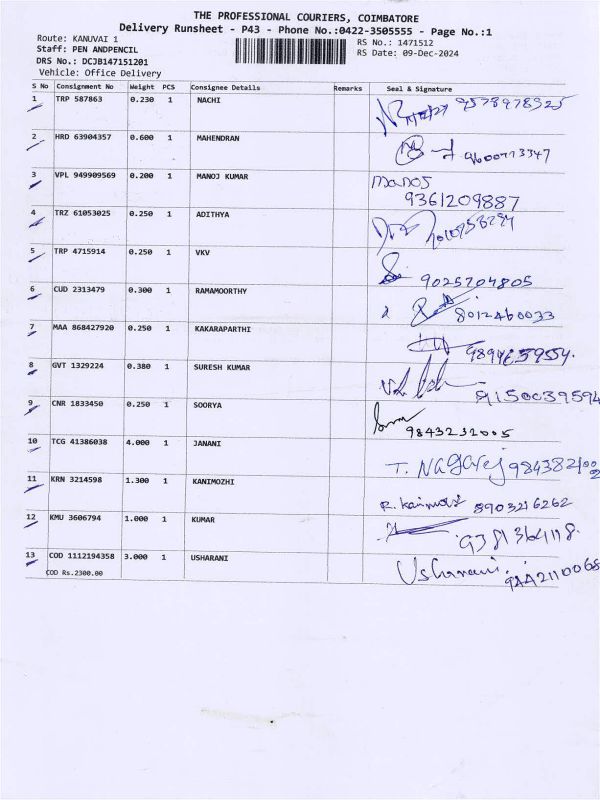 THE PROFESSIONAL COURIERS, COIMBATORE
Delivery Runsheet - P43 - Phone No.:0422-3505555 - Page No.:1
Route: KANUVAI 1
Staff: PEN ANDPENCIL
DRS No.: DCJB147151201
Vehicle: Office Delivery
RS No.: 1471512
RS Date: 09-Dec-2024
S No Consignment No Weight PCS Consignee Details Remarks Seal & Signature
1 TRP 587863 0.230 1 NACHI 9578978325
2 HRD 63904357 0.600 1 MAHENDRAN 9600773347
3 VPL 949909569 0.200 1 MANOJ KUMAR Manoj
9361209887
4 TRZ 61053025 0.250 1 ADITHYA
5 TRP 4715914 0.250 1 VKV 9025704805
6 CUD 2313479 0.300 1 RAMAMOORTHY 8012460033
7 MAA 868427920 0.250 1 KAKARAPARTHI 9894639554.
8 GVT 1329224 0.380 1 SURESH KUMAR 9150039594
9 CNR 1833450 0.250 1 SOORYA 9843232005
10 TCG 41386038 4.000 1 JANANI T. Nagaraj
11 KRN 3214598 1.300 1 KANIMOZHI 8903216262
12 KMU 3606794 1.000 1 KUMAR
13 COD 1112194358 3.000 1 USHARANI Usharani. 9442110068
COD Rs.2300.00